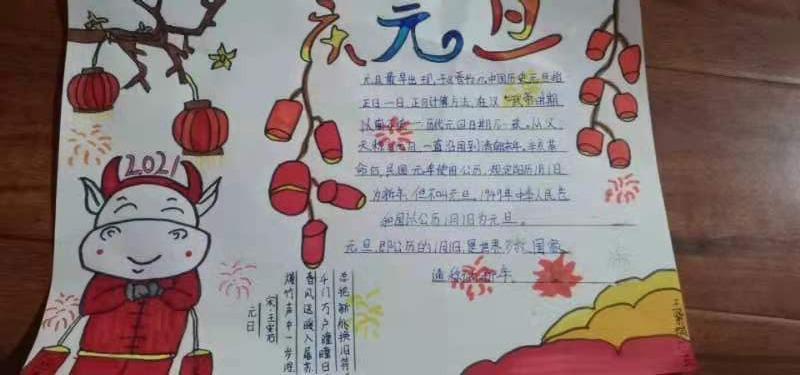 庆元旦
2021
元旦最早出现于
中国历史元旦指
正月一日,正月计算方法,在汉武帝时期
以前
历代元旦日期
不一致。从汉
一直沿用到清朝末年。辛亥革
命后,民国元年使用公历,规定阳历1月1日
为新年,但不叫元旦。1949年中华人民共
和国以公历1月1日为元旦。
元旦,即公历的1月1日,是世界多数国家
通称的新年
元日
宋·王安石
爆竹声中一岁除
春风送暖入屠苏
千门万户曈曈日
总把新桃换旧符